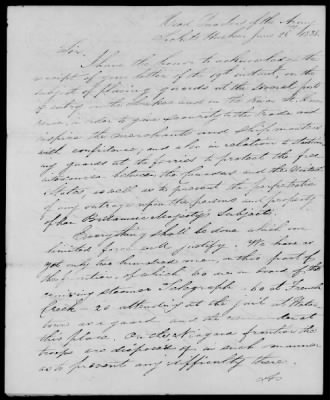 Head Quarters of the Army
Sackets Harbor June 18th 1838.
Sir,
I have the honor to acknowledge the
receipt of your letter of the 19th instant, on the
subject of placing guards at the several ports
of entry on the Lakes and on the River St. Law
rence, in order to give security to the trade and
inspire the merchants and ship masters
with confidence, and also in relation to station
ing guards at the ferries to protect the free
intercourse between the provinces and the United
States as well as to prevent the perpetration
of any outrage upon the persons and property
of Her Britannic Majesty's Subjects.
Everything shall be done which our
limited force will justify. We have as
yet only two hundred men, in this part of
the frontier, of which 60 are on board of the
cruising steamer Telegraph - 60 at French
Creek - 20 attending at the jail at Water
town as a guard, and the remainder at
this place. On the Niagara frontier the
troops are disposed of in such manner
as to prevent any difficulty there.